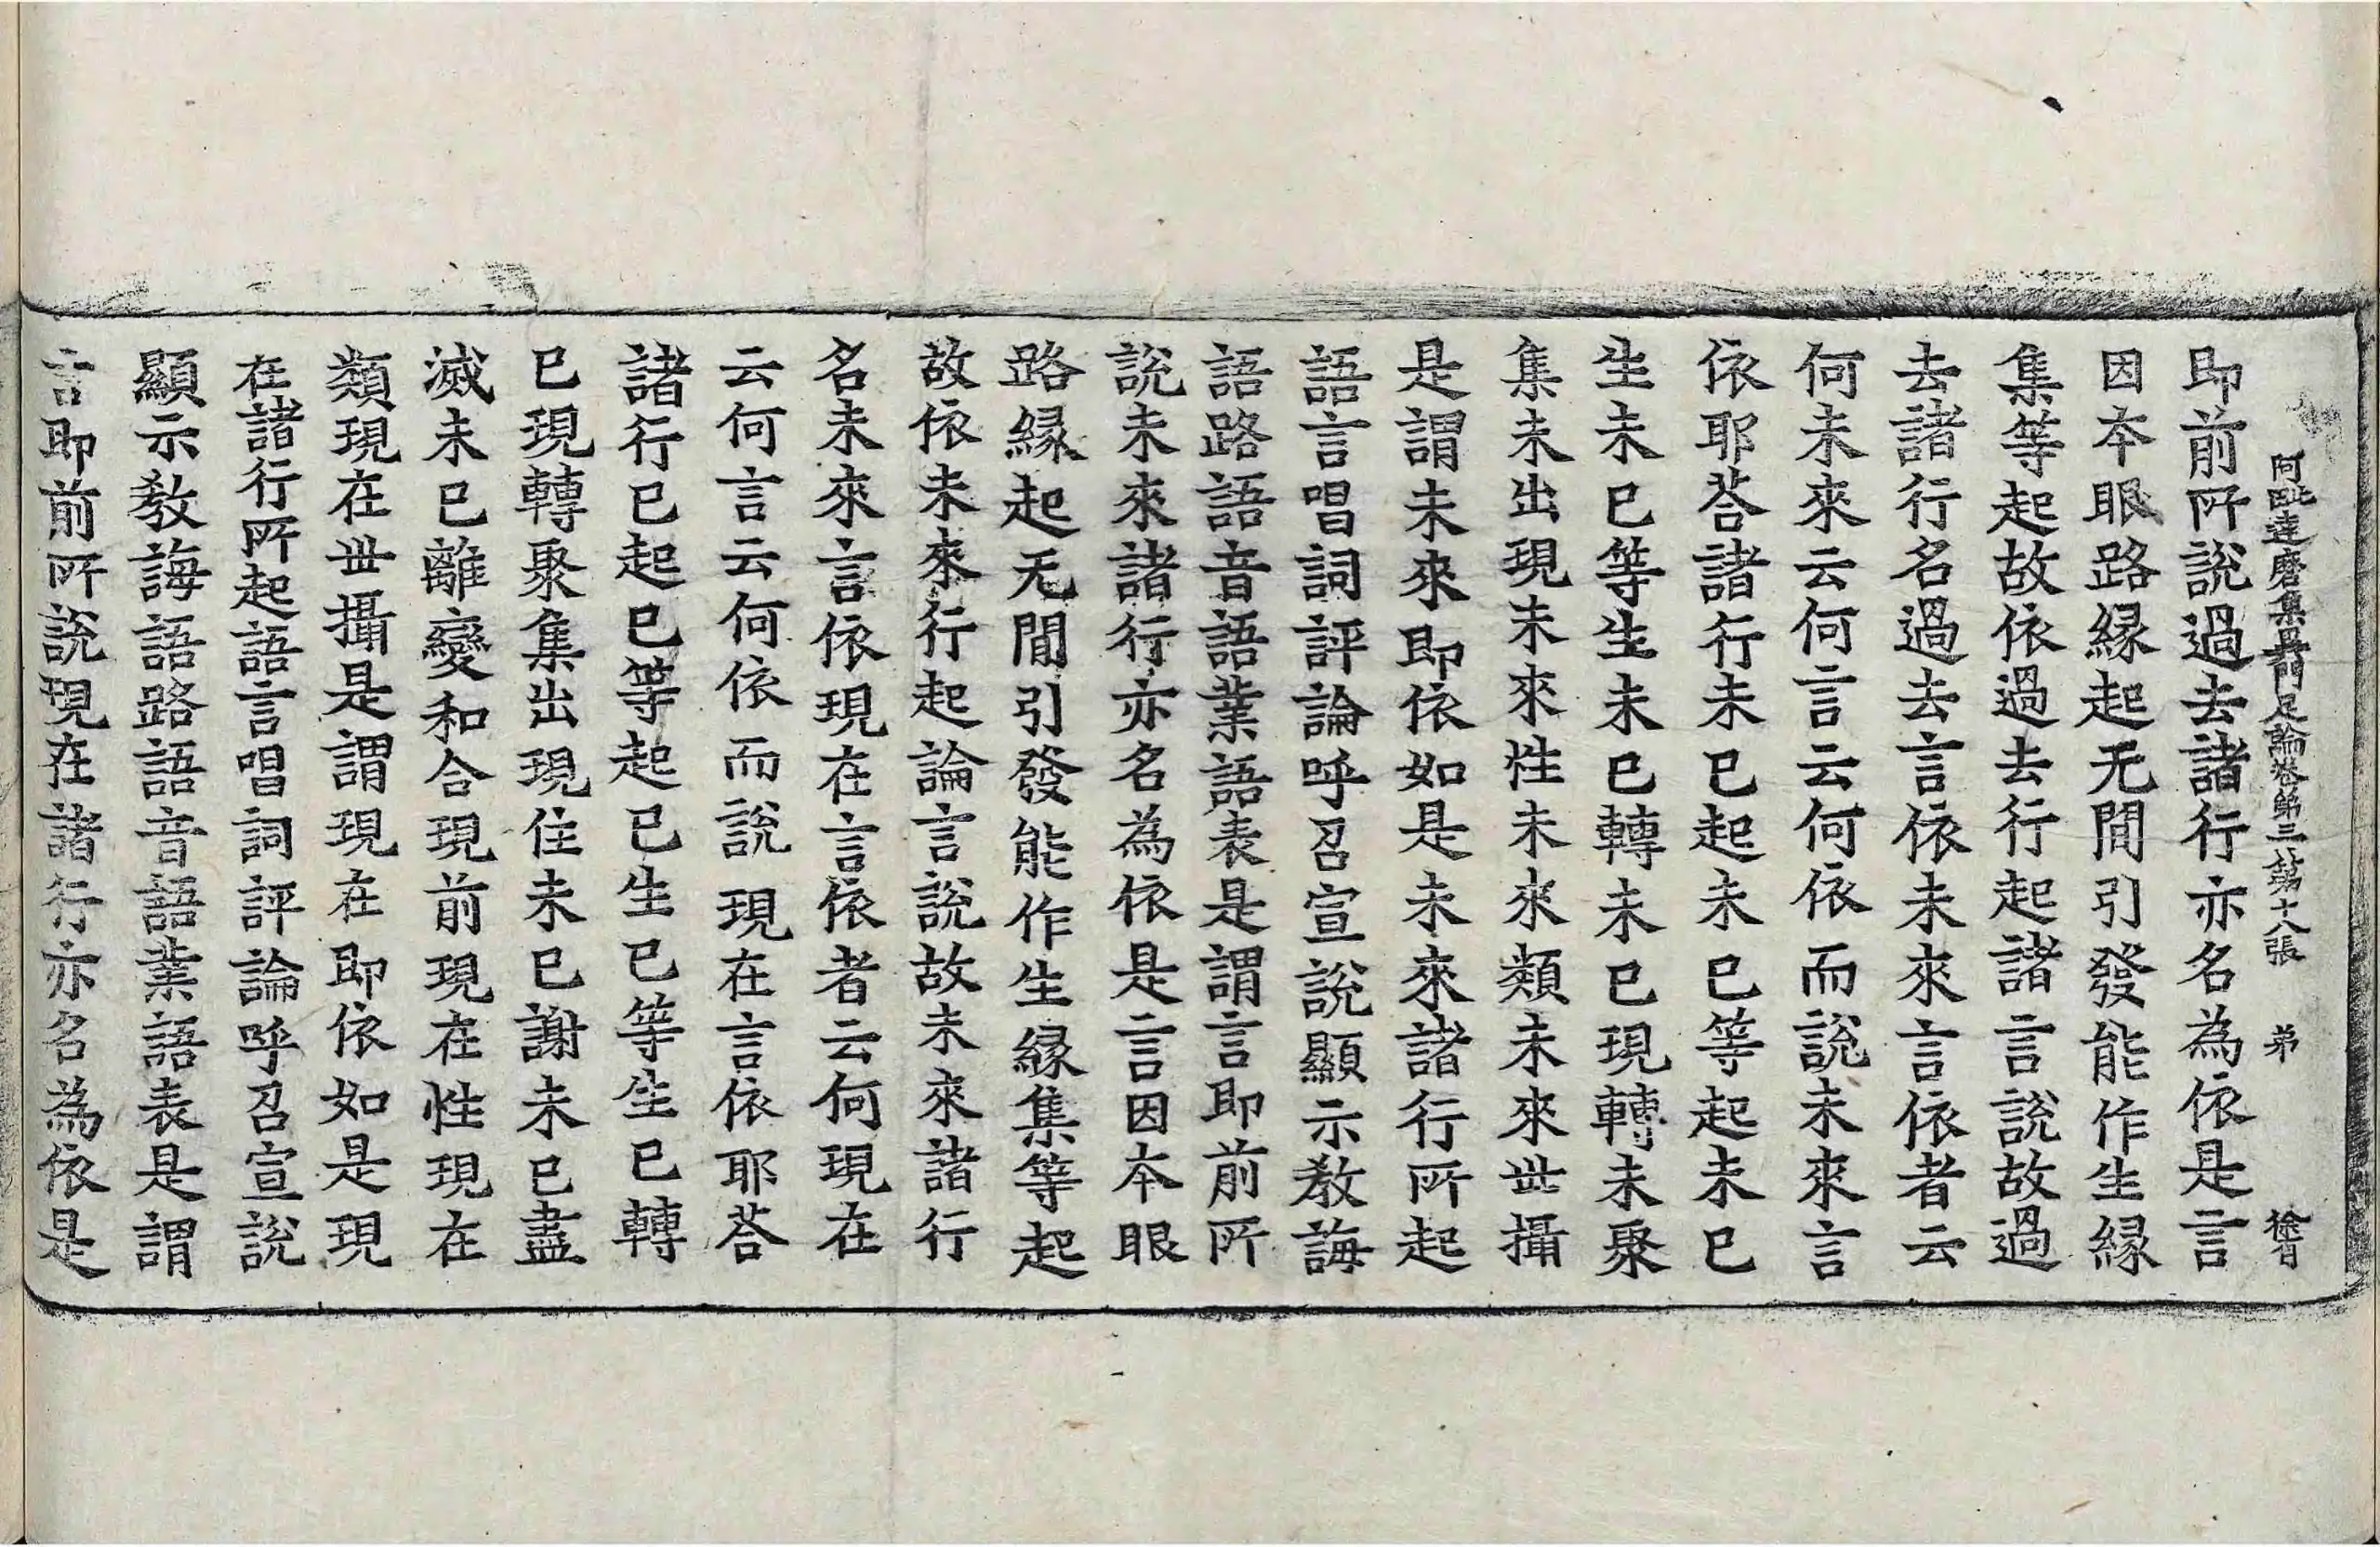 阿毗達磨集異門足論卷第三 第十八張 弟
即前所說過去諸行亦名為依是言
因本眼路緣起无間引發能作生緣
集等起故依過去行起諸言說故過
去諸行名過去言依未來言依者云
何未來云何言云何依而說未來言
依耶荅諸行未已起未已等起未已
生未已等生未已轉未已現轉未聚
集未出現未來性未來類未來世攝
是謂未來即依如是未來諸行所起
語言唱詞評論呼召宣說顯示教誨
語路語音語業語表是謂言即前所
說未來諸行亦名為依是言因本眼
路緣起无間引發能作生緣集等起
故依未來行起論言說故未來諸行
名未來言依現在言依者云何現在
云何言云何依而說現在言依耶荅
諸行已起已等起已生已等生已轉
已現轉聚集出現住未已謝未已盡
滅未已離變和合現前現在性現在
類現在世攝是謂現在即依如是現
在諸行所起語言唱詞評論呼召宣說
顯示教誨語路語音語業語表是謂
言即前所說現在諸行亦名為依是